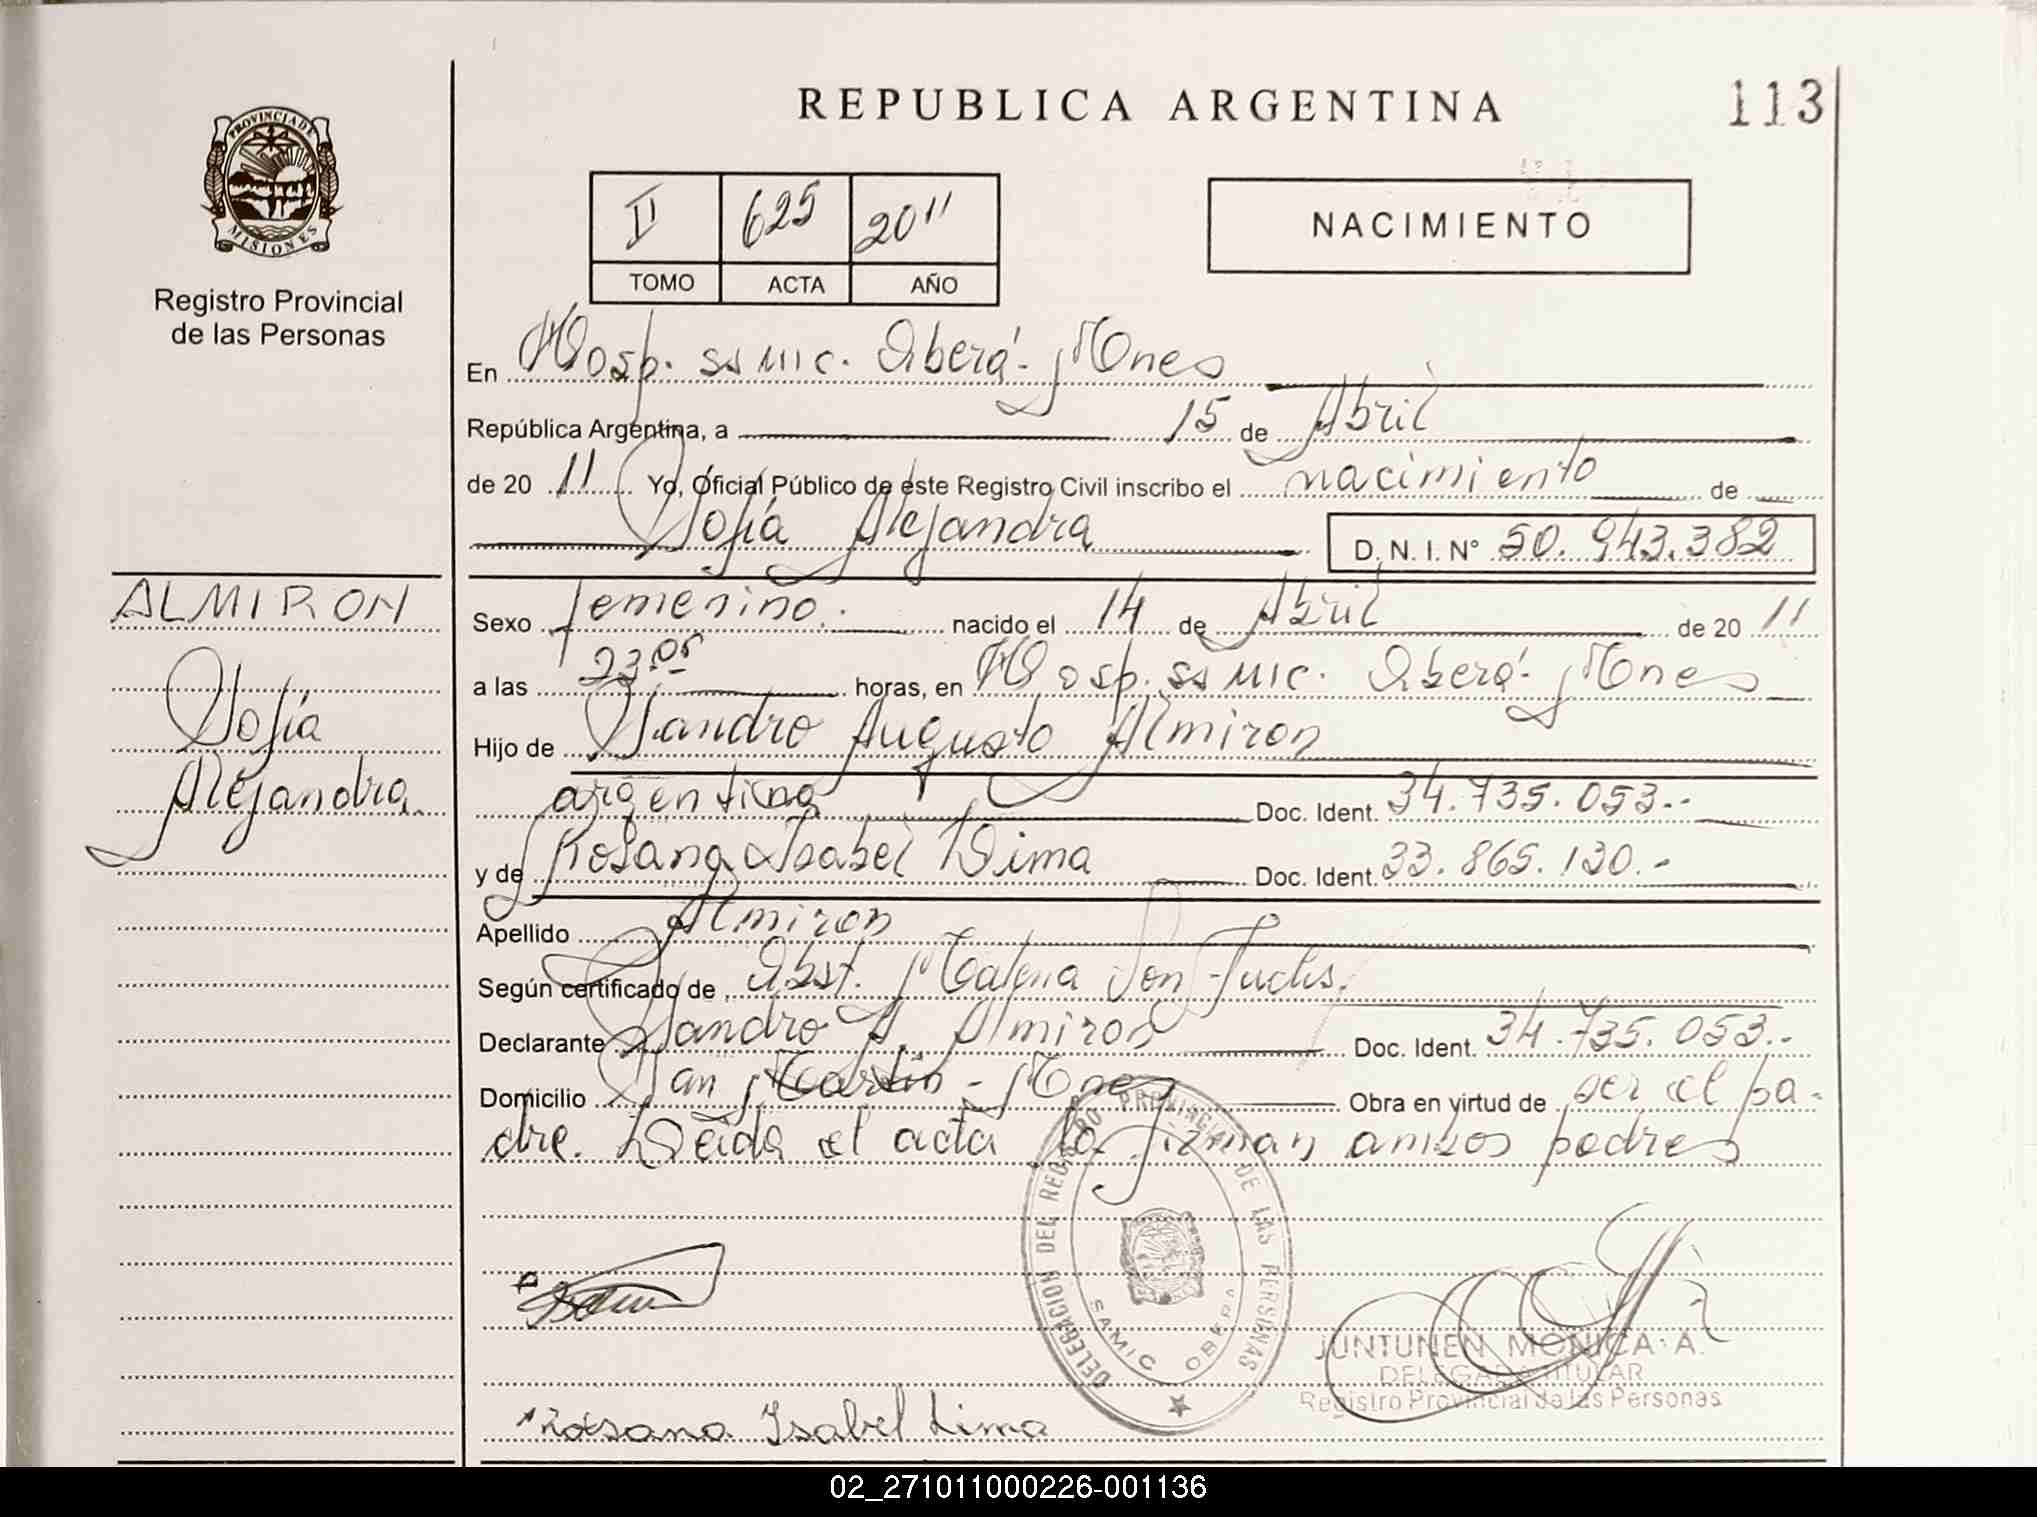 REPUBLICA ARGENTINA
113
PROVINCIA DE
MISIONES
Registro Provincial
de las Personas
II 625 2011
TOMO ACTA AÑO
NACIMIENTO
En Hosp. SAMIC. Oberá - Mnes
República Argentina, a 15 de Abril
de 20 11 Yo, Oficial Público de este Registro Civil inscribo el nacimiento de
Sofía Alejandra D.N.I. N° 50.943.382
ALMIRON
Sofía
Alejandra
Sexo femenino. nacido el 14 de Abril de 20 11
a las 23:05 horas, en Hosp. SAMIC. Oberá - Mnes
Hijo de Sandro Augusto Almiron
argentino Doc. Ident. 34.735.053.--
y de Rosana Isabel Lima Doc. Ident. 33.865.130.-
Apellido Almiron
Según certificado de Obst. Von Fuchs.
Declarante Sandro A. Almiron Doc. Ident. 34.735.053.--
Domicilio San Martín - Mnes Obra en virtud de ser el pa-
dre. Leída el acta la firman ambos padres
DELEGACION DEL REGISTRO PROVINCIAL DE LAS PERSONAS
SAMIC OBERA
JUNTUNEN MONICA A.
DELEGADA TITULAR
Registro Provincial de las Personas
Rosana Isabel Lima
02_271011000226-001136